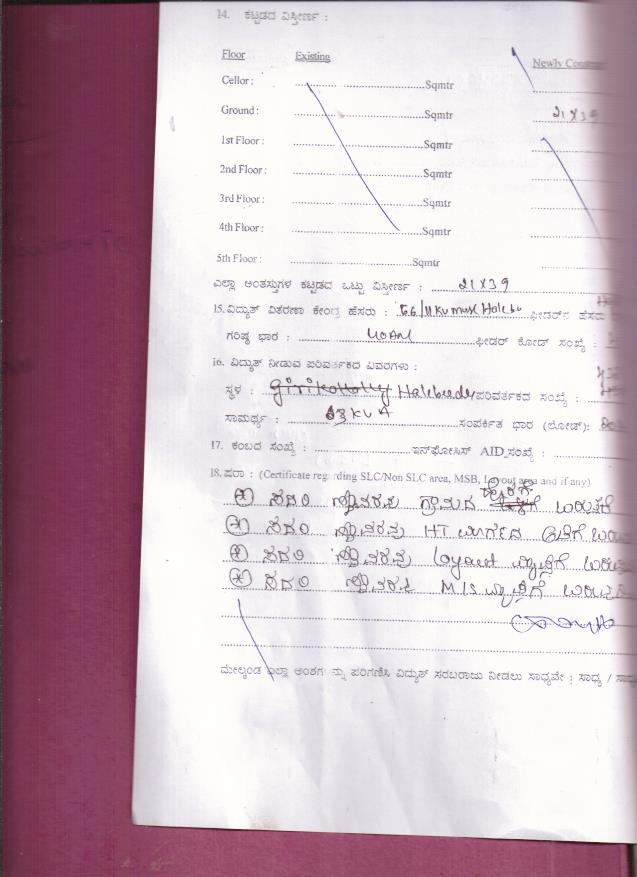 14. ಕಟ್ಟಡದ ವಿಸ್ತೀರ್ಣ :
Floor Existing Newly
Cellor : Sqmtr
Ground : Sqmtr 21 X 39
1st Floor : Sqmtr
2nd Floor : Sqmtr
3rd Floor : Sqmtr
4th Floor : Sqmtr
5th Floor : Sqmtr
ಎಲ್ಲಾ ಅಂತಸ್ತುಗಳ ಕಟ್ಟಡದ ಒಟ್ಟು ವಿಸ್ತೀರ್ಣ : 21 X 39
15. ವಿದ್ಯುತ್ ವಿತರಣಾ ಕೇಂದ್ರ ಹೆಸರು : ಫೀಡರ್‌ನ ಹೆಸರು
ಗರಿಷ್ಠ ಭಾರ : ಫೀಡರ್ ಕೋಡ್ ಸಂಖ್ಯೆ :
16. ವಿದ್ಯುತ್ ನೀಡುವ ಪರಿವರ್ತಕದ ವಿವರಗಳು :
ಸ್ಥಳ : Halebudu ಪರಿವರ್ತಕದ ಸಂಖ್ಯೆ :
ಸಾಮರ್ಥ್ಯ : 63 KVA ಸಂಪರ್ಕಿತ ಭಾರ (ಲೋಡ್):
17. ಕಂಬದ ಸಂಖ್ಯೆ : ಇನ್‌ಫೋಸಿಸ್ AID ಸಂಖ್ಯೆ :
18. ಷರಾ : (Certificate regarding SLC/Non SLC area, MSB, Layout area and if any)
ಸದರಿ ಸ್ಥಾವರವು ಗ್ರಾಮದ
ಸದರಿ ಸ್ಥಾವರವು HT ಮಾರ್ಗದ
ಸದರಿ ಸ್ಥಾವರವು Loyaut ವ್ಯಾಪ್ತಿಗೆ
ಸದರಿ ಸ್ಥಾವರವು M/S ವ್ಯಾಪ್ತಿಗೆ
ಮೇಲ್ಕಂಡ ಎಲ್ಲಾ ಅಂಶಗಳನ್ನು ಪರಿಗಣಿಸಿ ವಿದ್ಯುತ್ ಸರಬರಾಜು ನೀಡಲು ಸಾಧ್ಯವೇ : ಸಾಧ್ಯ /